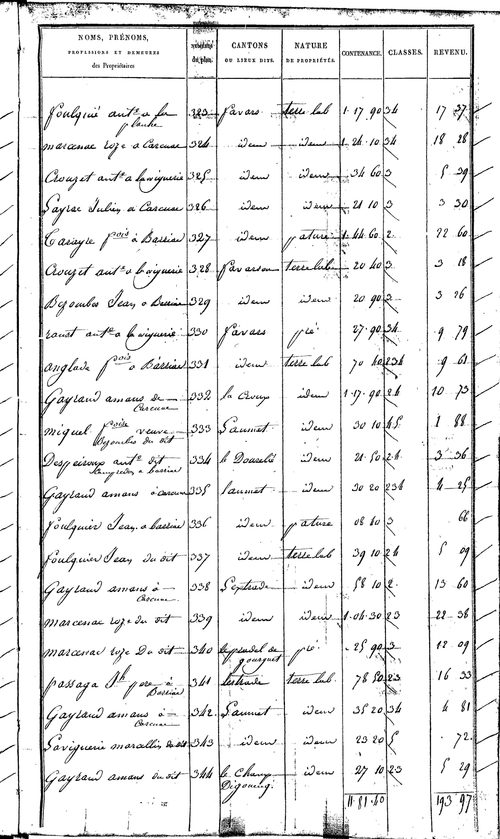 NOMS, PRÉNOMS, PROFESSIONS ET DEMEURES des Propriétaires | NUMÉROS du plan. | CANTONS OU LIEUX DITS. | NATURE DE PROPRIÉTÉS. | CONTENANCE. | CLASSES. | REVENU.
foulquié ant.e a la planhe 323 favars terre lab 1·17 90 34 17 37
marcenac roze a Carcuac 324 idem idem 1·24 10 34 18 28
Crouzet ant.e a laviguerie 325 idem idem 34 60 3 5 39
Layrac Julien a Carcuac 326 idem idem 21 10 3 3 30
fois a Barriac 327 idem pature 1·44 60 2 22 60
Crouzet ant.e a laviguerie 328 terre lab 20 40 3 3 18
Bezombes Jean a Barriac 329 idem idem 20 90 3 3 26
ant.e a laviguerie 330 favars pré 27·90 34 9 79
anglade fois a Barriac 331 idem terre lab 70 40 234 9 61
Gayraud amans de Carcuac 332 la Croux idem 1·17·90 24 10 73
miquel foise veuve Bezombes du dit 333 Laumet idem 30 10 45 1 88
Despeiroux ant.e dit a Barriac 334 le idem 21 50 24 3 36
Gayraud amans a carcuac 335 laumet idem 30 20 234 4 25
foulquier Jean a barriac 336 idem pature 08 40 3 66
foulquier Jean du dit 337 idem terre lab 39 10 24 5 09
Gayraud amans à Carcuac 338 Lestrade idem 58 10 2 13 60
marcenac roze du dit 339 idem idem 1·04·30 23 22 38
marcenac roze Du dit 340 le pradel de pré 25 90 3 12 09
passaga J.h pre à Barriac 341 lestrade terre lab 78 50 23 16 33
Gayraud amans à Carcuac 342 Laumet idem 35 20 34 4 81
Laviguerie du dit 343 idem idem 23 20 5 72
Gayraud amans du dit 344 le Champ idem 27 10 23 5 29
11·81·40 193 97